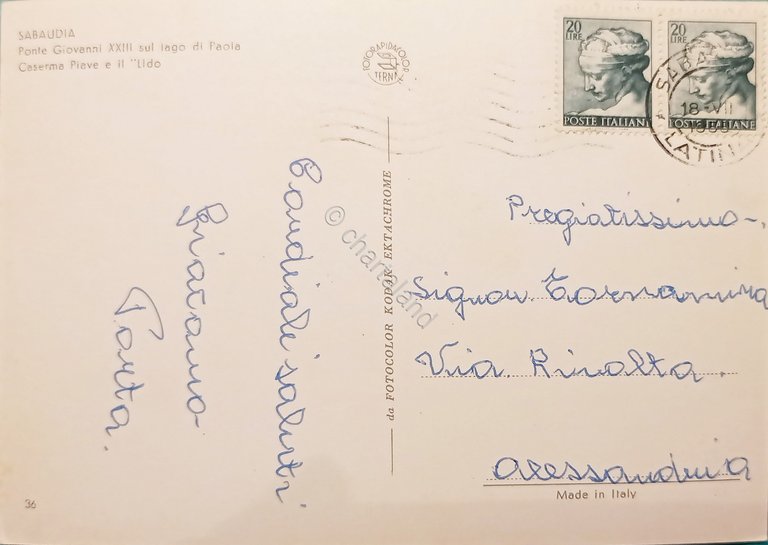 SABAUDIA
Ponte Giovanni XXIII sul lago di Paola
Caserma Piave e il "Lido
FOTORAPIDACOLOR
TERNI
20
LIRE
POSTE ITALIANE
20
LIRE
POSTE ITALIANE
18 VII
LATINA
Cordiali saluti
Giacomo
Porta.
da FOTOCOLOR KODAK EKTACHROME
© chartaland
Pregiatissimo
Signor
Via Rivalta
Alessandria
Made in Italy
36